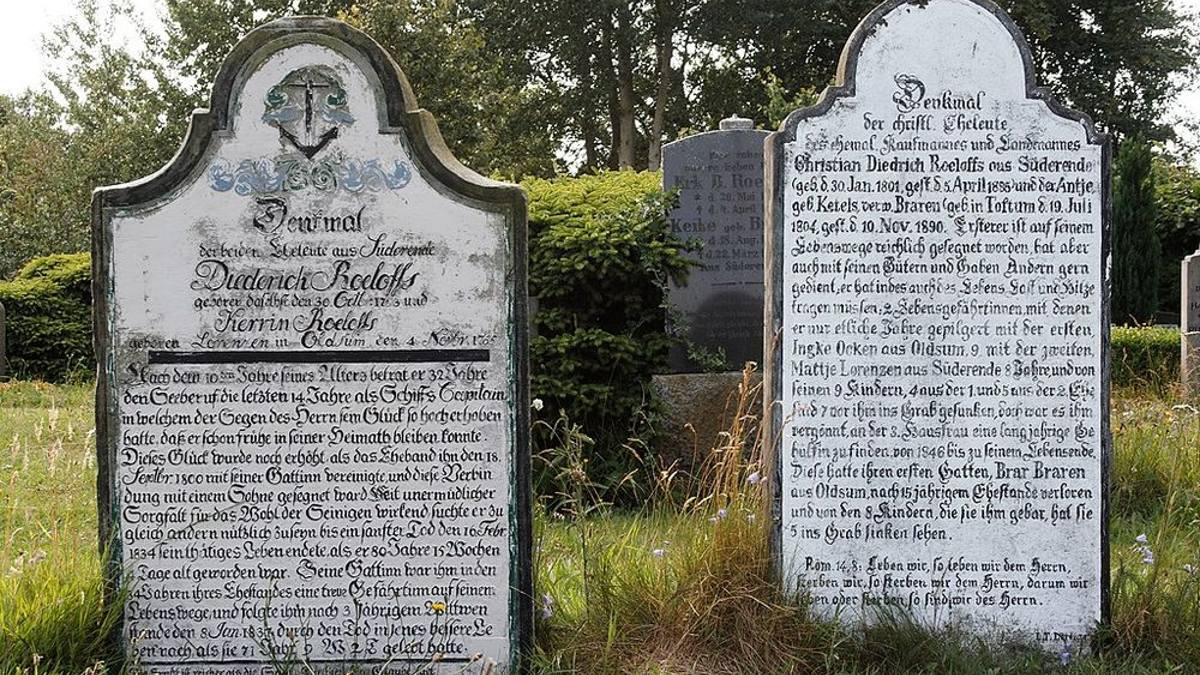 Denkmal
der beiden Eheleute aus Süderende
Diederich Roeloffs
geboren daselbst den 30 Octb: 1753 und
Kerrin Roeloffs
geboren Lorenzen in Oldsum, den 4 Novbr. 1765
Nach dem 10ten Jahre seines Alters betrat er 32 Jahre
den See beruf die letzten 14 Jahre als Schiffs Cospitain
in welchem der Segen des Herrn sein Glück so hoch erhoben
hatte, daß er schon frühe in seiner Heimath bleiben konnte.
Dieses Glück wurde noch erhöht, als das Eheband ihn den 18.
Septbr 1800 mit seiner Gattinn vereinigte, und diese Verbin
dung mit einem Sohne gesegnet ward. Mit unermüdlicher
Sorgfalt für das Wohl der Seinigen wirkend suchte er zu
gleich andern nützlich zu seyn bis ein sanfter Tod den 16 Febr.
1834 sein thätiges Leben endete, als er 80 Jahre 15 Wochen
Tage alt geworden war. Seine Gattinn war ihm in den
34 Jahren ihres Ehestandes eine treue Gefährtinn auf seinen
Lebenswege, und folgte ihm nach 3 jährigem Wittwen
stande den 8. Jan 1837 durch den Tod in jenes bessere Le
ben nach als sie 71 Jahr 9 W 2 T gelebt hatte.
Krk B. Roe
d. 28. Mai
d. 4. April
Keike geb. Br
d. 18. Aug.
d. 22. März
aus Südere
Denkmal
der christl. Eheleute
des ehemal. Kaufmannes und Landmannes
Christian Diedrich Roeloffs aus Süderende
(geb. d. 30. Jan. 1801, gest. d. 5. April 1885) und der Antje,
geb. Ketels, verw. Braren (geb. in Toftum d. 19. Juli
1804, gest. d. 10. Nov. 1890. Ersterer ist auf seinem
Lebenswege reichlich gesegnet worden, hat aber
auch mit seinen Gütern und Gaben Andern gern
gedient, er hat indes auch des Lebens Last und Hitze
tragen müssen; 2 Lebensgefährtinnen, mit denen
er nur etliche Jahre gepilgert mit der ersten,
Ingke Ocken aus Oldsum, 9, mit der zweiten,
Mattje Lorenzen aus Süderende 8 Jahre und von
seinen 9 Kindern, 4 aus der 1. und 5 aus der 2. Ehe,
sind 7 vor ihm ins Grab gesunken, doch war es ihm
vergönnt, an der 3. Hausfrau eine langjährige Ge
hülfin zu finden, von 1846 bis zu seinem Lebensende.
Diese hatte ihren ersten Gatten, Brar Braren
aus Oldsum, nach 15 jährigem Ehestande verloren
und von den 8 Kindern, die sie ihm gebar, hat sie
5 ins Grab sinken sehen.
Röm. 14, 8: Leben wir, so leben wir dem Herrn,
sterben wir, so sterben wir dem Herrn, darum wir
leben oder sterben, so sind wir des Herrn.